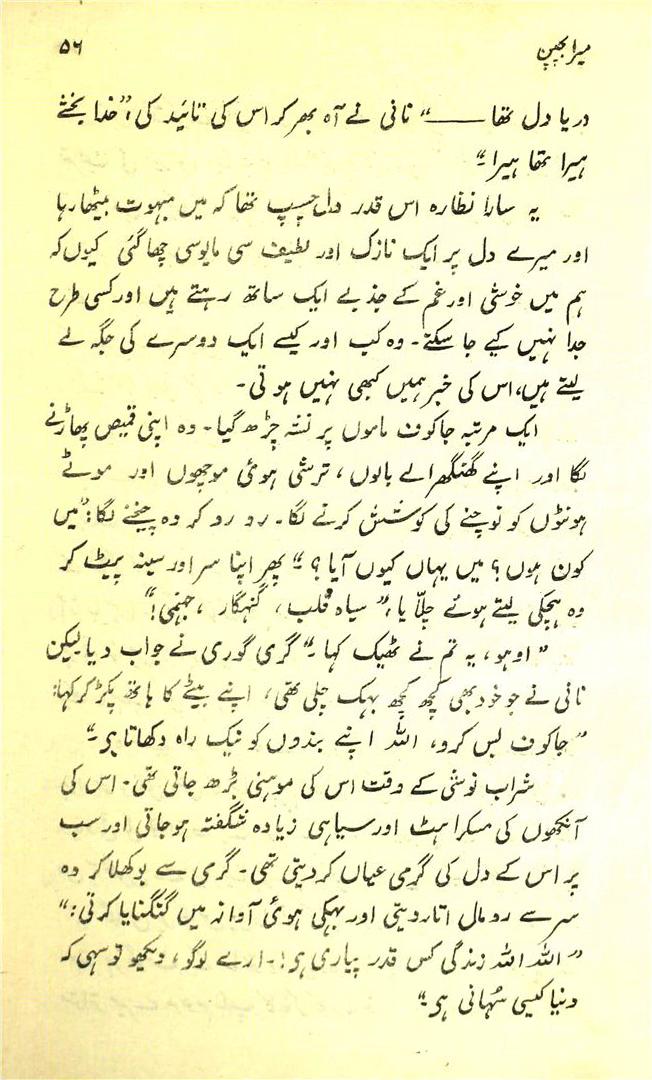 میرا بچپن ۵۶
دریا دل تھا ـــــ" نانی نے آہ بھر کر اس کی تائید کی، "خدا بخشے
ہیرا تھا ہیرا۔"
یہ سارا نظارہ اس قدر دل چسپ تھا کہ میں مبہوت بیٹھا رہا
اور میرے دل پر ایک نازک اور لطیف سی مایوسی چھا گئی کیوں کہ
ہم میں خوشی اور غم کے جذبے ایک ساتھ رہتے ہیں اور کسی طرح
جدا نہیں کیے جا سکتے۔ وہ کب اور کیسے ایک دوسرے کی جگہ لے
لیتے ہیں، اس کی خبر ہمیں کبھی نہیں ہوتی۔
ایک مرتبہ جاکوف ماموں پر نشہ چڑھ گیا۔ وہ اپنی قمیص پھاڑنے
لگا اور اپنے گھنگھرالے بالوں، ترشی ہوئی موچھوں اور موٹے
ہونٹوں کو نوچنے کی کوشش کرنے لگا۔ رو رو کر وہ چیخنے لگا: "میں
کون ہوں؟ میں یہاں کیوں آیا؟" پھر اپنا سر اور سینہ پیٹ کر
وہ ہچکی لیتے ہوئے چلّایا، "سیاہ قلب، گنہگار، جہنمی!"
"اوہو، یہ تم نے ٹھیک کہا۔" گری گوری نے جواب دیا لیکن
نانی نے جو خود بھی کچھ کچھ بہک چلی تھی، اپنے بیٹے کا ہاتھ پکڑ کر کہا:
"جاکوف بس کرو، اللہ اپنے بندوں کو نیک راہ دکھاتا ہی۔"
شراب نوشی کے وقت اس کی موہنی بڑھ جاتی تھی۔ اس کی
آنکھوں کی مسکراہٹ اور سیاہی زیادہ شگفتہ ہو جاتی اور سب
پر اس کے دل کی گرمی عیاں کر دیتی تھی۔ گرمی سے بوکھلا کر وہ
سر سے رومال اتار دیتی اور بہکی ہوئی آواز میں گنگنایا کرتی:"
"اللہ اللہ زندگی کس قدر پیاری ہی!۔ ارے لوگو، دیکھو تو سہی کہ
دنیا کیسی سُہانی ہی۔"